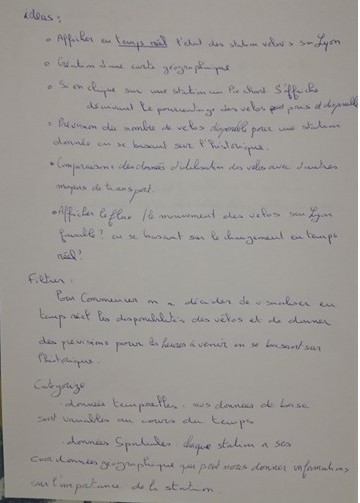 ideas :
• Afficher en temps réel l'etat des station velov's sur Lyon
• Création d'une carte géographique
• Si on clique sur une station un Pie chart s'affiche
donnant le pourcentage des velos pris et disponible
• Prévision des nombre de velos disponible pour une station
donnée en se basant sur l'historique.
• Comparaison des données d'utilisation des velos avec d'autres
moyens de transport.
• Afficher le flux / le mouvement des velos sur Lyon
faisable? en se basant sur le changement en temps
réel?
Filtrer :
Pour Commencer on a décider de visualiser en
temps réel les disponibilités des vélos et de donner
des prévisions pour les heures à venir en se basant sur
l'historique.
Catégorize
données temporelles : nos données de base
sont variables au cours du temps
. données Spatiales : chaque station a ses
coordonnées géographique qui peut nous donner informations
sur l'importance de la station.